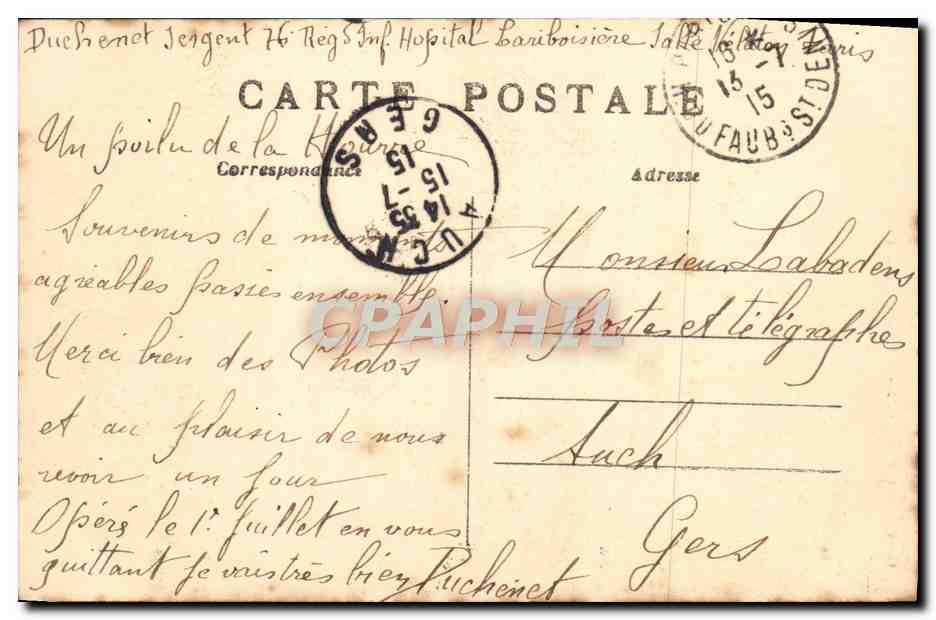 Duchenet Sergent 76 Reg d'Inf. Hopital Lariboisière Salle Nélaton Paris
CARTE POSTALE
Un poilu de la
Correspondance
Adresse
Souvenirs de moments
agréables passés ensemble.
Merci bien des Photos
et au plaisir de nous
revoir un jour
Opéré le 1r Juillet en vous
quittant je vais très bien Duchenet
Monsieur Labadens
Postes et télégraphes
Auch
Gers
AUCH
GERS
14 35
15 -7
15
13 -7
15
DU FAUBG ST DEN
CPAPHIL